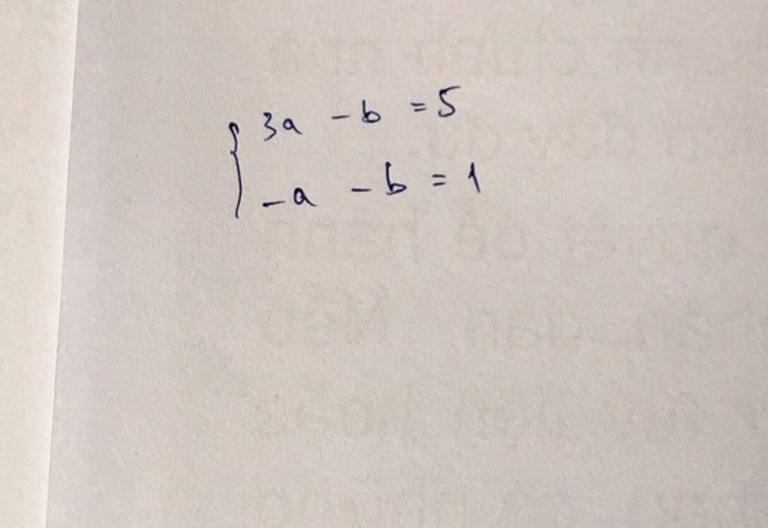 3a - b = 5
-a - b = 1